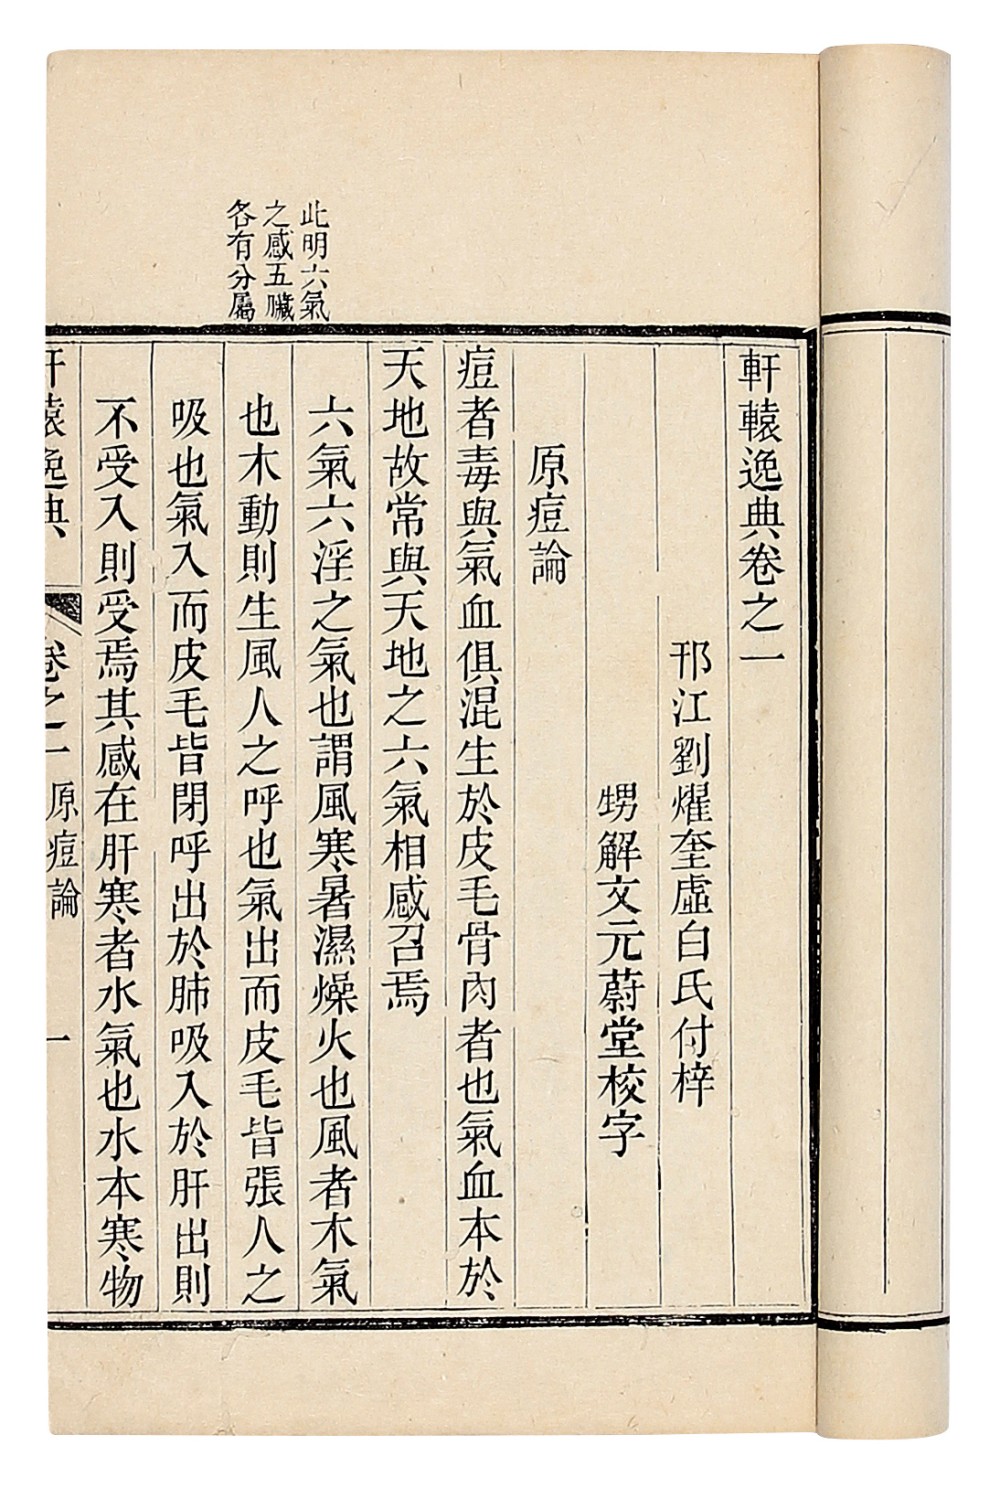 軒轅逸典卷之一
邗江劉燿奎虛白氏付梓
甥解文元蔚堂校字
原痘論
痘者毒與氣血俱混生於皮毛骨肉者也氣血本於
天地故常與天地之六氣相感召焉
此明六氣
之感五臟
各有分屬
六氣六淫之氣也謂風寒暑濕燥火也風者木氣
也木動則生風人之呼也氣出而皮毛皆張人之
吸也氣入而皮毛皆閉呼出於肺吸入於肝出則
不受入則受焉其感在肝寒者水氣也水本寒物
軒轅逸典 卷之一 原痘論 一